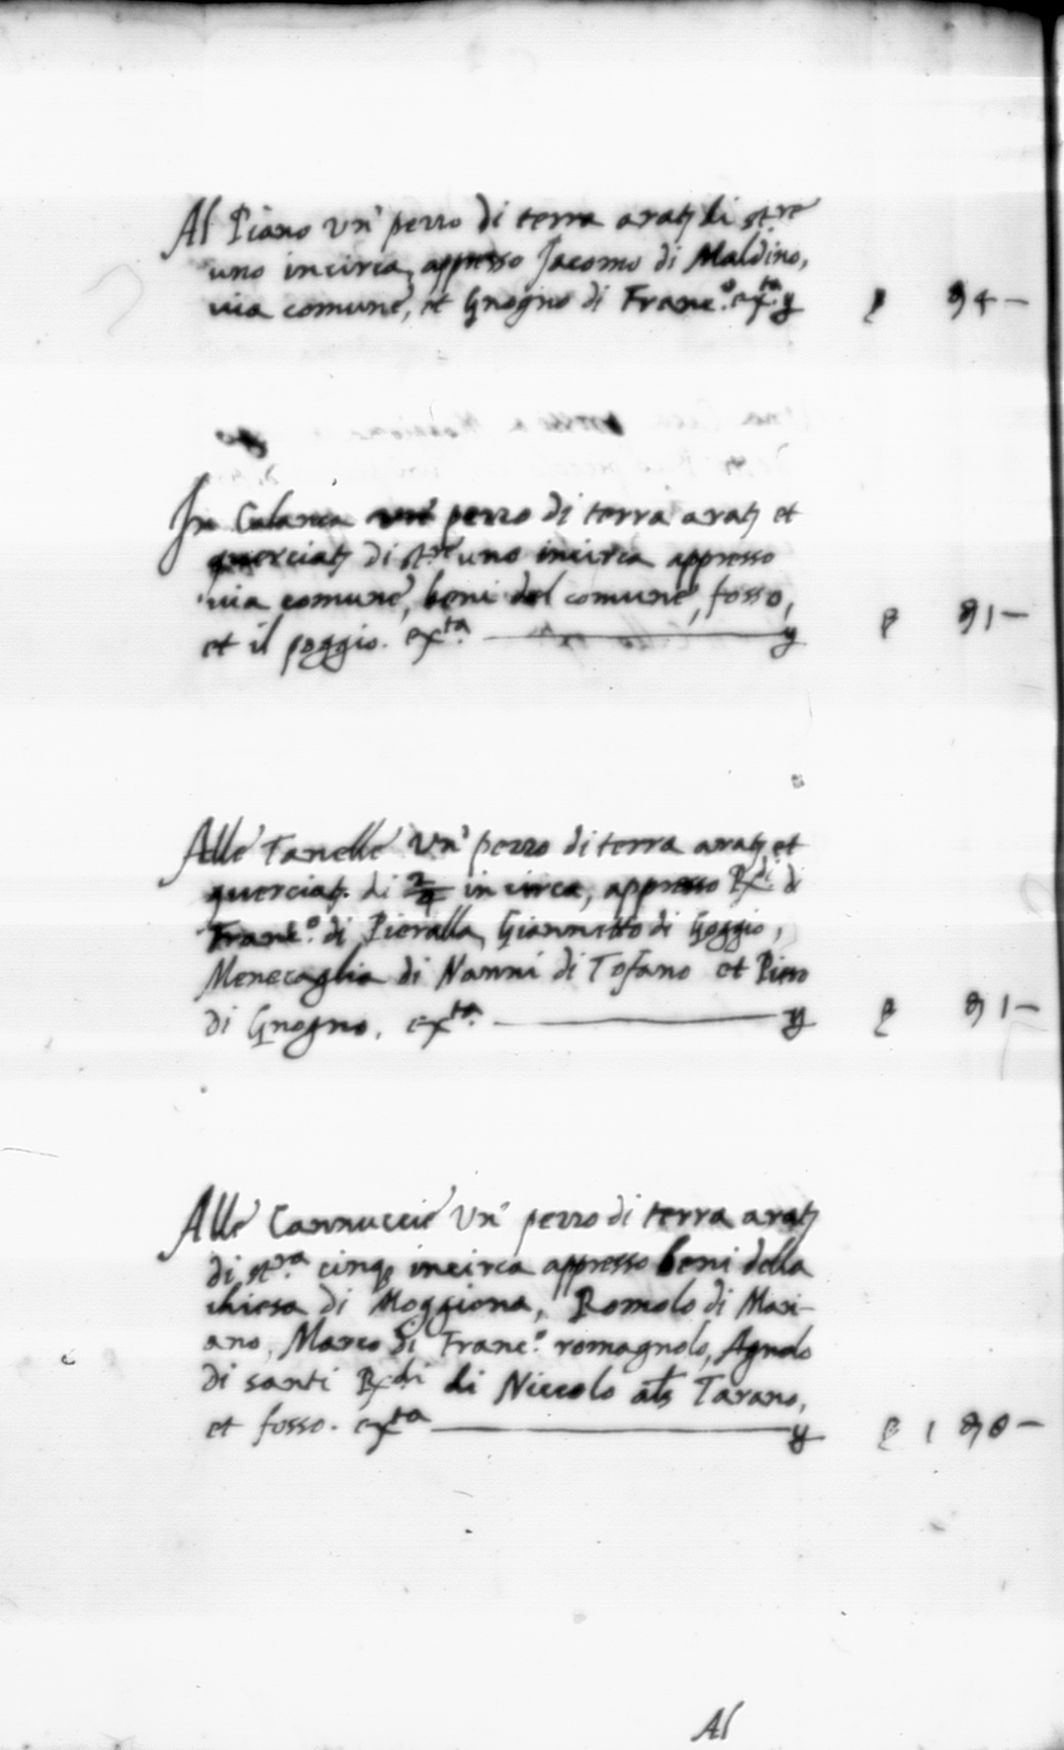 Al Piano Un' pezzo di terra arat. di st.re
uno incirca, appresso Jacomo di Maldino,
via comune, et Gnogno di Franc.o ex.ta y 94 —
In Calanca un' pezzo di terra arat. et
querciat. di st.re uno incirca appresso
via comune, beni del comune, fosso,
et il poggio. ex.ta — y 91 —
Alle Tanelle Un' pezzo di terra arat. et
querciat. di 2/4 in circa, appresso di
Franc.o di Pieralla, Giannetto di Goggio,
Menecaglia di Nanni di Tofano et Piero
di Gnogno. ex.ta — y 91 —
Alle Cannuccie Un' pezzo di terra arat.
di st.ra cinq. incirca appresso beni della
chiesa di Moggiona, Romolo di Mari-
ano, Marco di Franc.o romagnolo, Agnolo
di santi di Niccolo als Tarano,
et fosso. ex.ta — y 1 90 —
Al